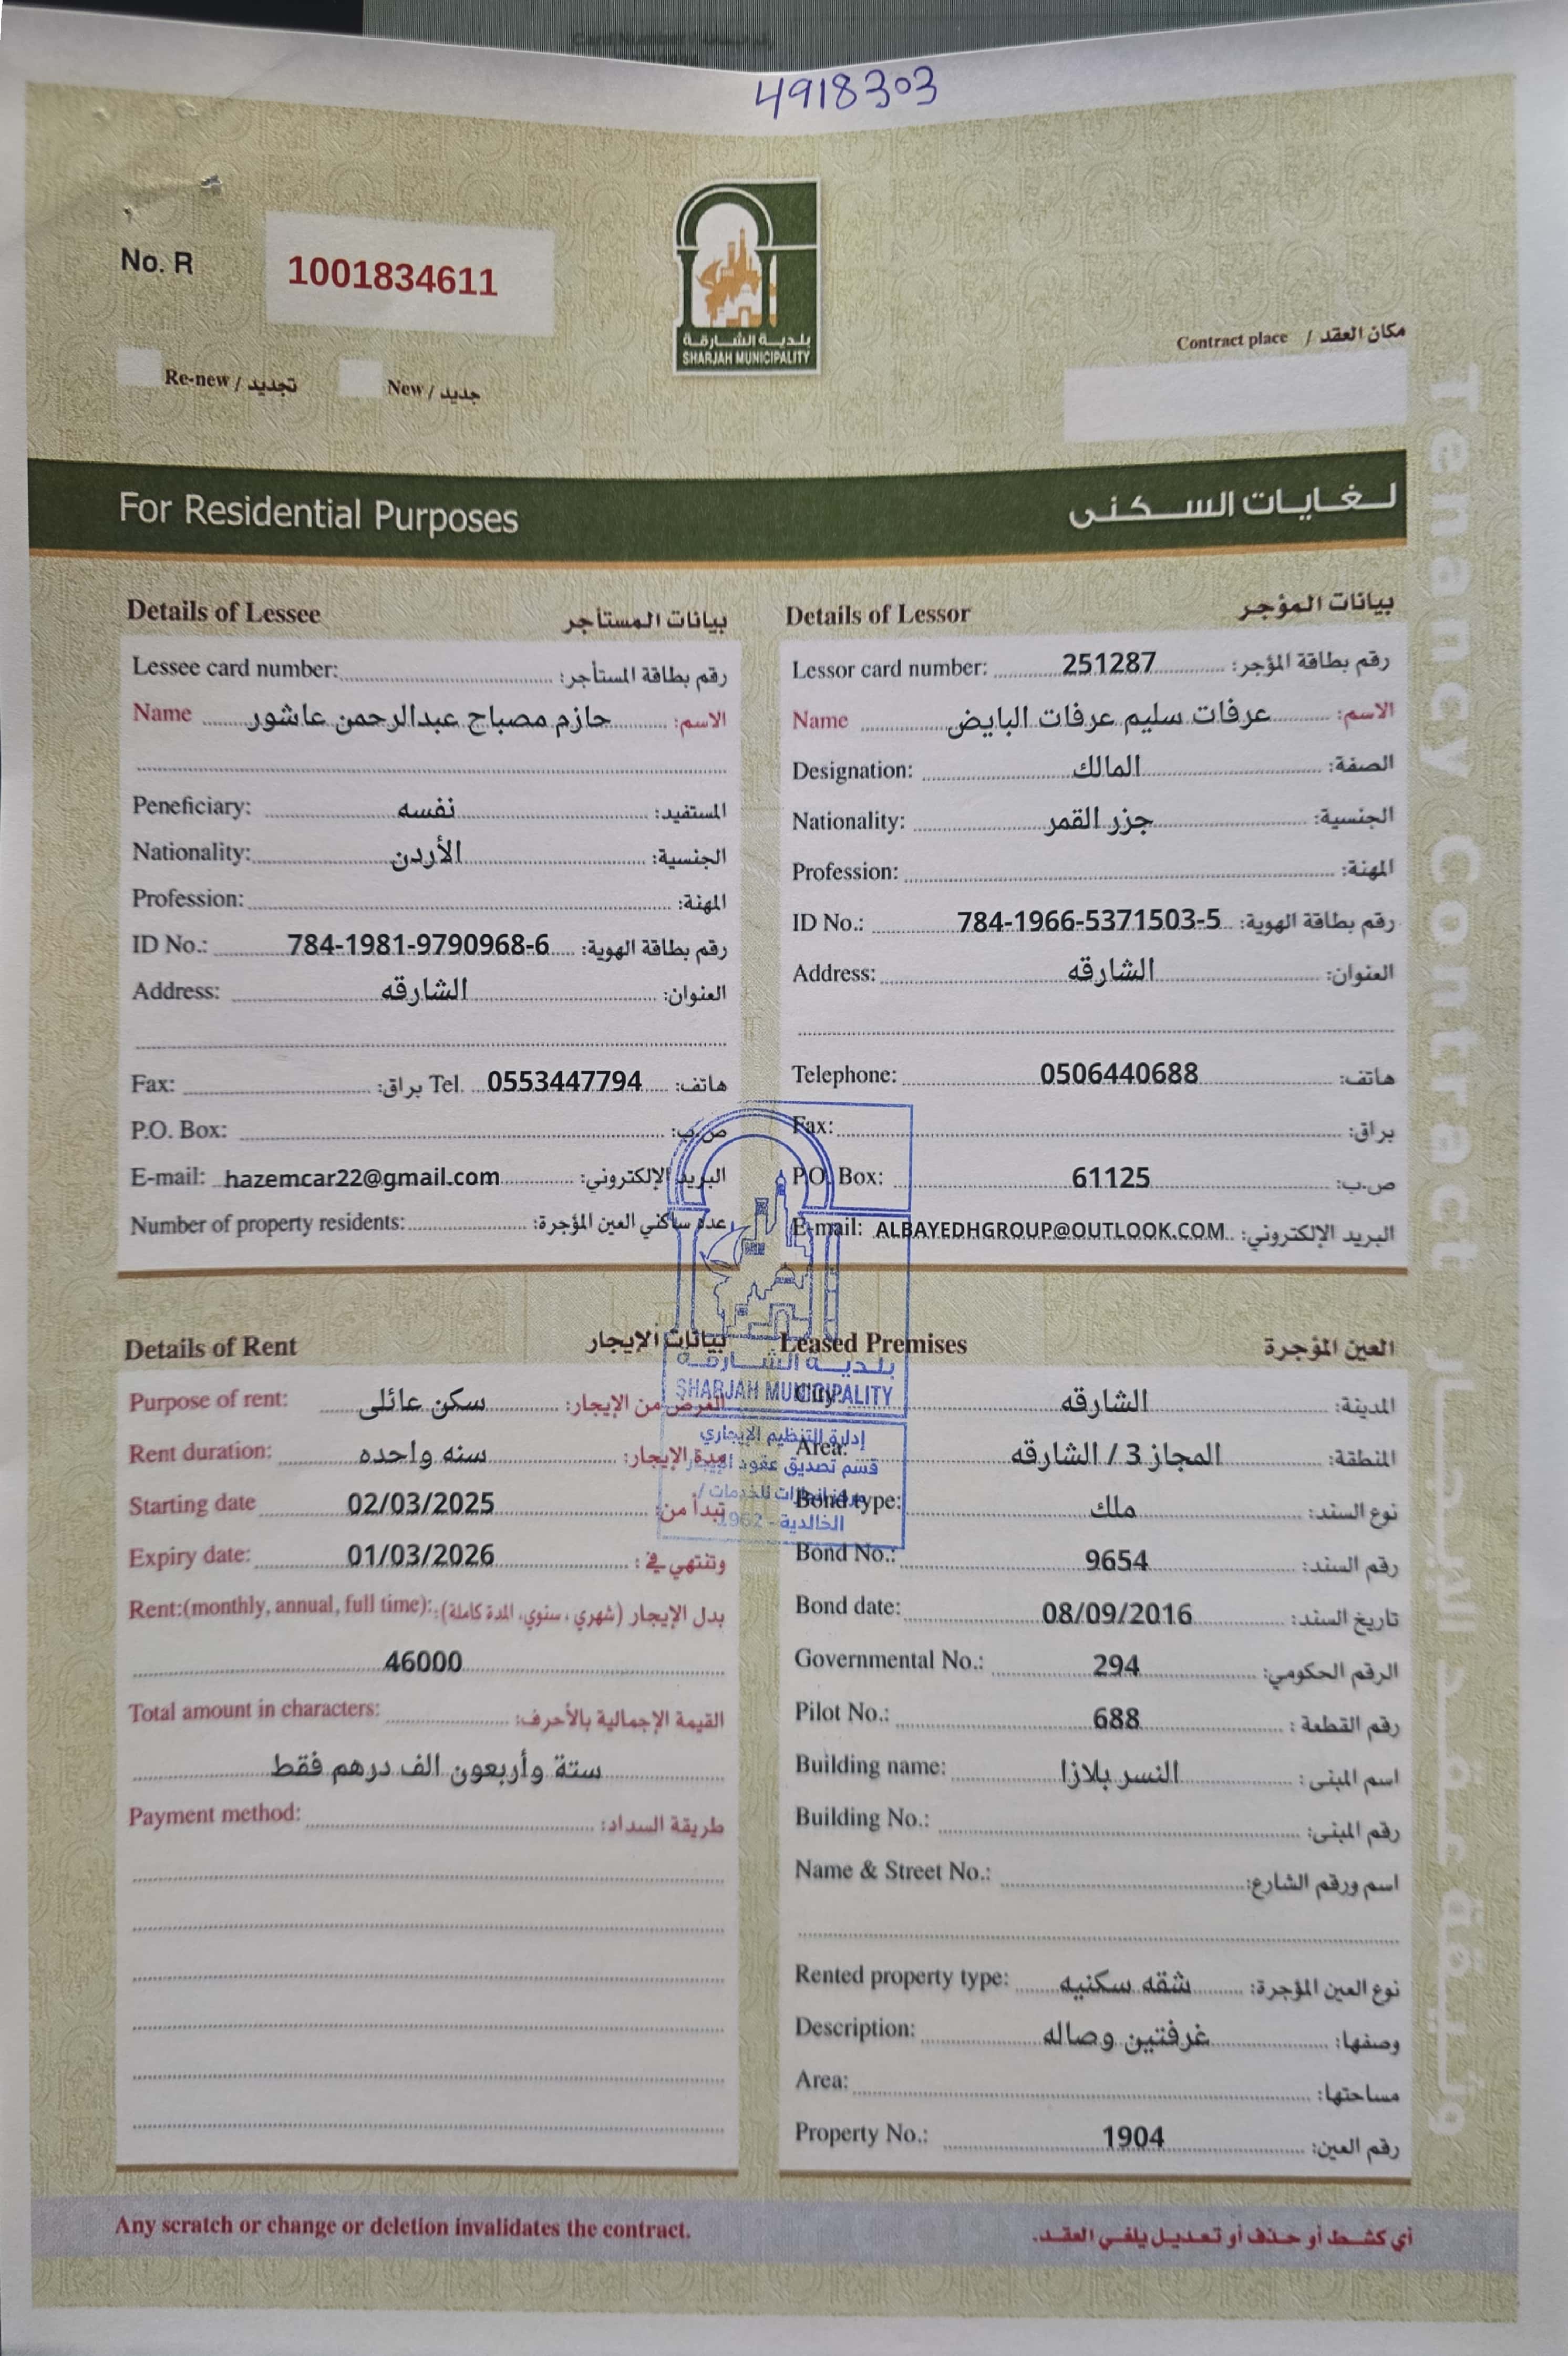 4918303
No. R 1001834611
بلدية الشارقة
SHARJAH MUNICIPALITY
Re-new / تجديد New / جديد
Contract place / مكان العقد
For Residential Purposes لغايات السكنى
Tenancy Contract
Details of Lessee بيانات المستأجر
Lessee card number: رقم بطاقة المستأجر:
Name حازم مصباح عبدالرحمن عاشور الاسم:
Peneficiary: نفسه المستفيد:
Nationality: الأردن الجنسية:
Profession: المهنة:
ID No.: 784-1981-9790968-6 رقم بطاقة الهوية:
Address: الشارقه العنوان:
Fax: براق: Tel. 0553447794 هاتف:
P.O. Box: ص.ب:
E-mail: hazemcar22@gmail.com البريد الإلكتروني:
Number of property residents: عدد ساكني العين المؤجرة:
Details of Lessor بيانات المؤجر
Lessor card number: 251287 رقم بطاقة المؤجر:
Name عرفات سليم عرفات البايض الاسم:
Designation: المالك الصفة:
Nationality: جزر القمر الجنسية:
Profession: المهنة:
ID No.: 784-1966-5371503-5 رقم بطاقة الهوية:
Address: الشارقه العنوان:
Telephone: 0506440688 هاتف:
Fax: براق:
P.O. Box: 61125 ص.ب:
E-mail: ALBAYEDHGROUP@OUTLOOK.COM البريد الإلكتروني:
Details of Rent بيانات الإيجار
Purpose of rent: سكن عائلى الغرض من الإيجار:
Rent duration: سنه واحده مدة الإيجار:
Starting date 02/03/2025 تبدأ من:
Expiry date: 01/03/2026 وتنتهي في:
Rent:(monthly, annual, full time): بدل الإيجار (شهري، سنوي، المدة كاملة):
46000
Total amount in characters: القيمة الإجمالية بالأحرف:
ستة وأربعون الف درهم فقط
Payment method: طريقة السداد:
بلدية الشارقة
SHARJAH MUNICIPALITY
إدارة التنظيم الإيجاري
قسم تصديق عقود الإيجار
للخدمات /
الخالدية - 1962
Leased Premises العين المؤجرة
City: الشارقه المدينة:
Area: المجاز 3 / الشارقه المنطقة:
Bond type: ملك نوع السند:
Bond No.: 9654 رقم السند:
Bond date: 08/09/2016 تاريخ السند:
Governmental No.: 294 الرقم الحكومي:
Pilot No.: 688 رقم القطعة :
Building name: النسر بلازا اسم المبنى :
Building No.: رقم المبنى:
Name & Street No.: اسم ورقم الشارع:
Rented property type: شقه سكنيه نوع العين المؤجرة:
Description: غرفتين وصاله وصفها:
Area: مساحتها:
Property No.: 1904 رقم العين:
Any scratch or change or deletion invalidates the contract. أي كشط أو حذف أو تعديل يلغي العقد.